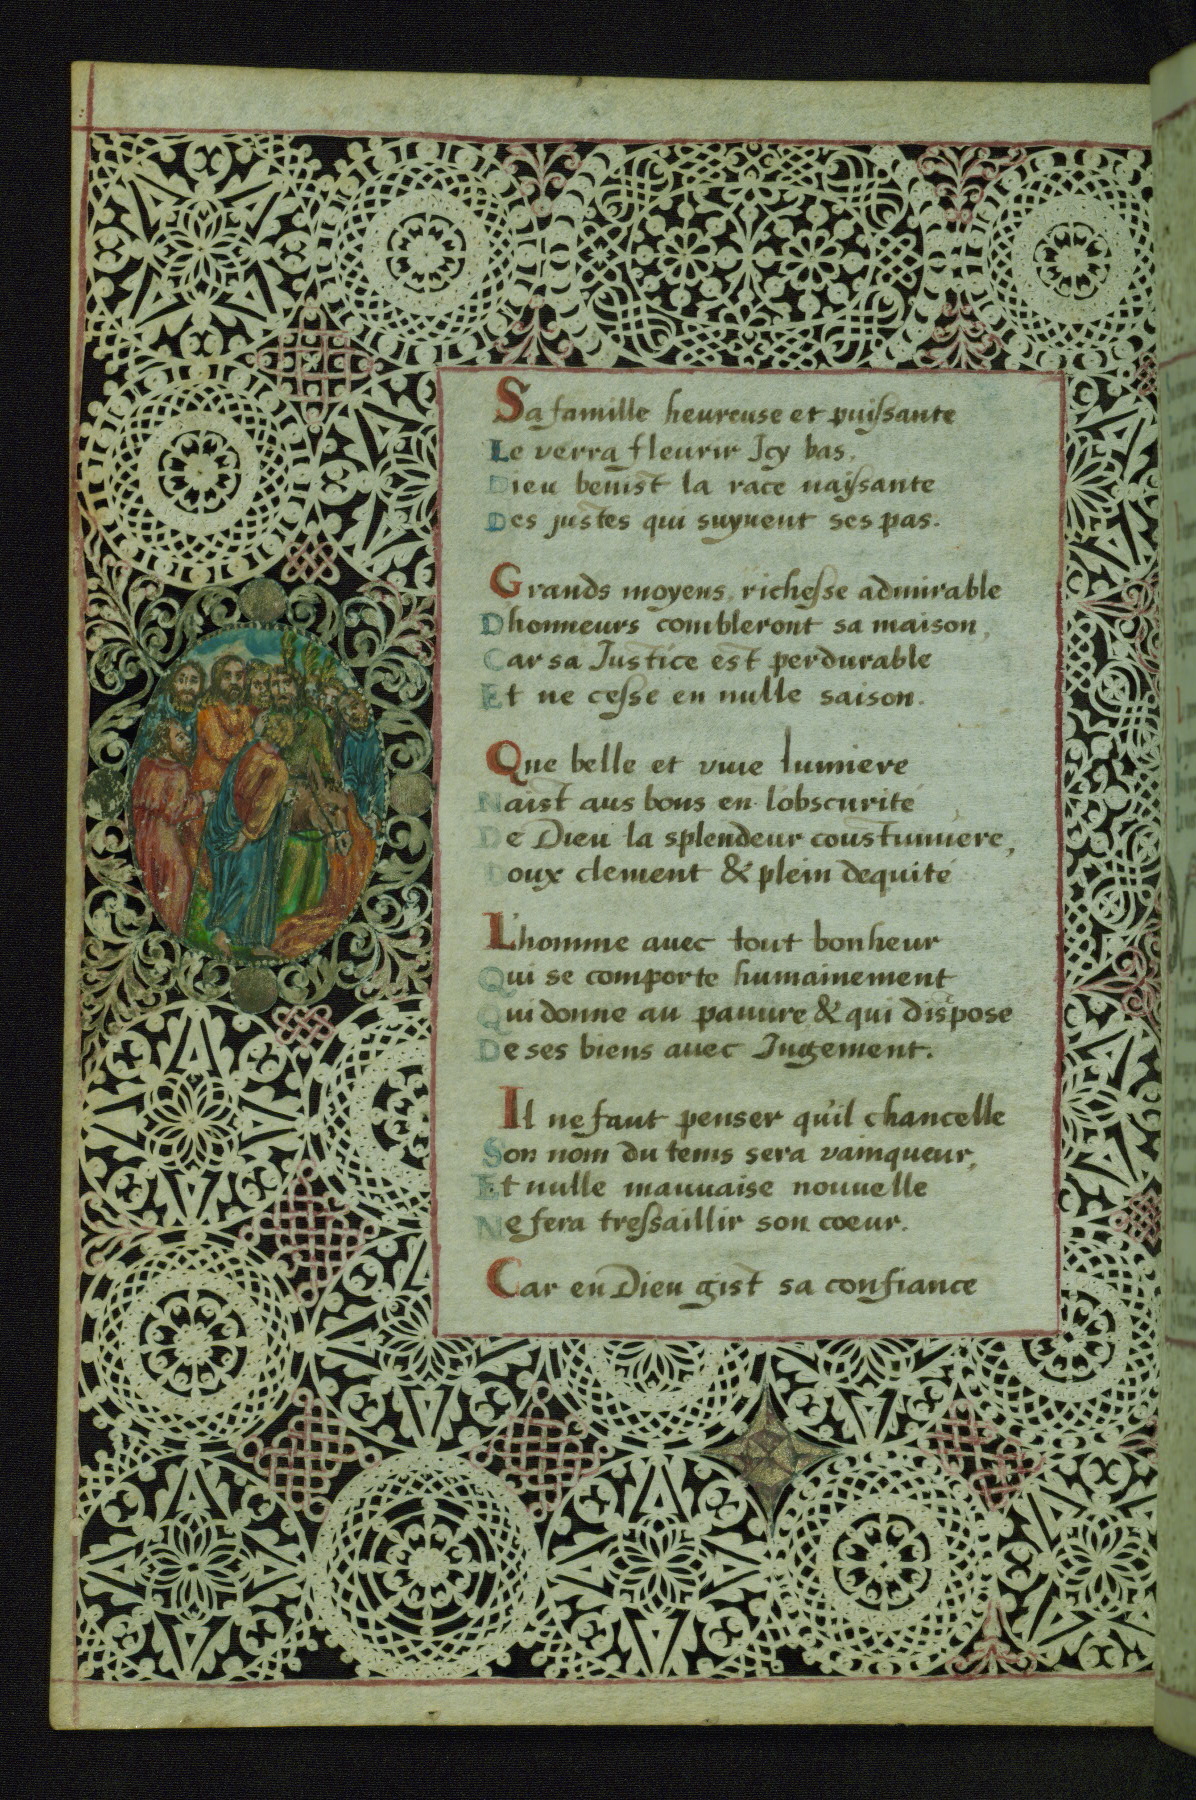 Sa famille heureuse et puissante
Le verra fleurir Icy bas,
Dieu benist la race naissante
Des justes qui suyuent ses pas.
Grands moyens, richesse admirable
Dhonneurs combleront sa maison,
Car sa Iustice est perdurable
Et ne cesse en nulle saison.
Que belle et viue lumiere
Naist aus bons en lobscurité
De Dieu la splendeur coustumiere,
Doux clement & plein dequité
L'homme auec tout bonheur
Qui se comporte humainement
Qui donne au pauure & qui dispose
De ses biens auec Iugement.
Il ne faut penser qu'il chancelle
Son nom du tems sera vainqueur,
Et nulle mauuaise nouuelle
Ne fera tressaillir son coeur.
Car en Dieu gist sa confiance